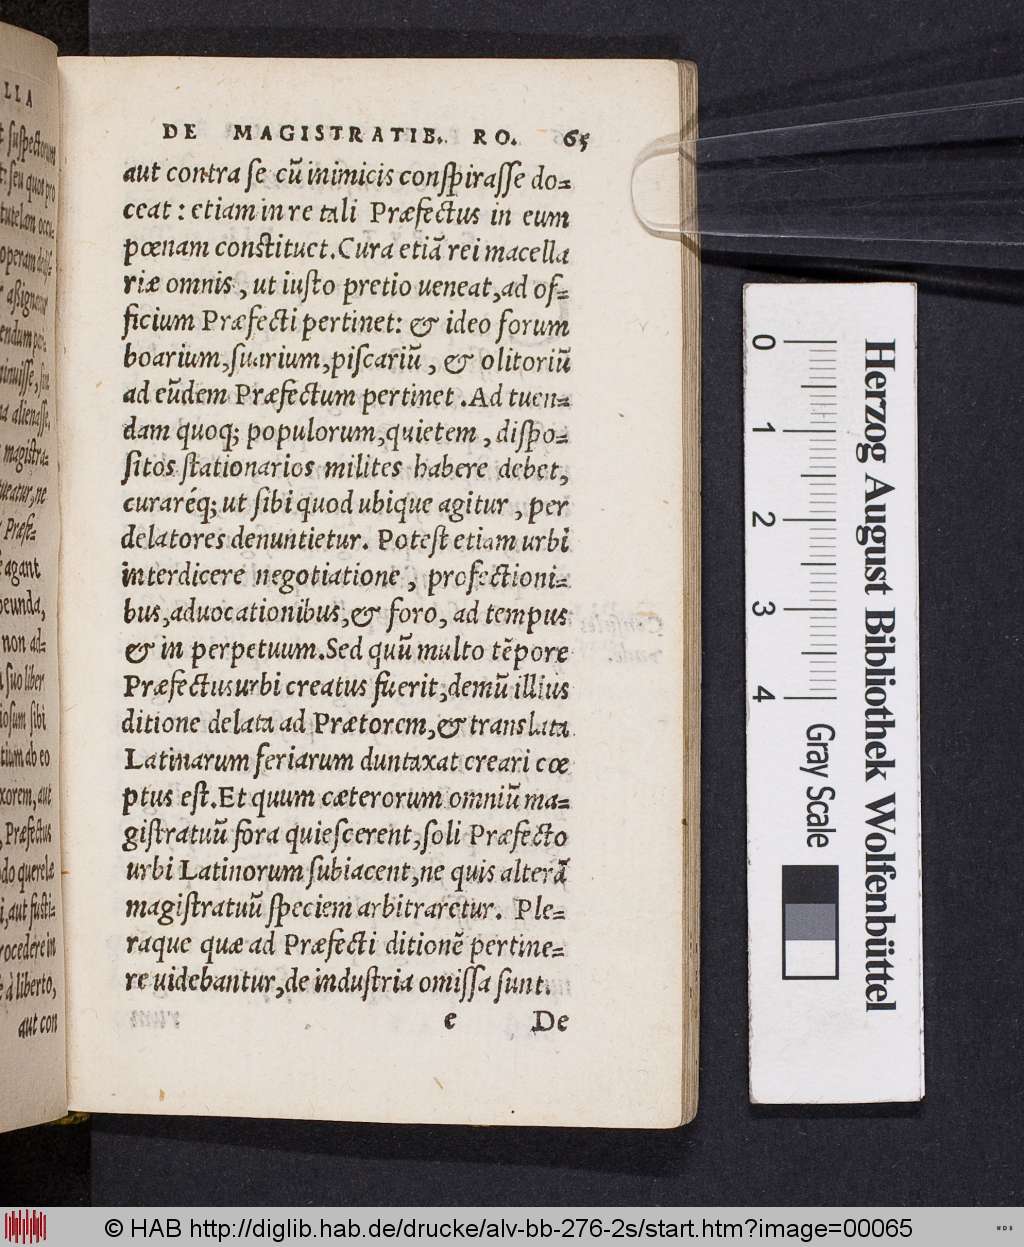 LLA
suspectorum
seu quot pro
tutelam occu-
operam
assignente
endum
minuisse, siue
alienasse,
magistra-
tueatur, ne
Præfe-
agant
eunda,
non ad-
suo liber
iosum sibi
tium ab eo
xorem, aut
, Præfectus
do querelæ
i, aut fusti-
rocedere in
à liberto,
aut con
DE MAGISTRATIB. RO. 65
aut contra se cũ inimicis conspirasse do-
ceat: etiam in re tali Præfectus in eum
pœnam constituet. Cura etiã rei macella
riæ omnis, ut iusto pretio ueneat, ad of-
ficium Præfecti pertinet: & ideo forum
boarium, suarium, piscariũ, & olitoriũ
ad eũdem Præfectum pertinet. Ad tuen-
dam quoq; populorum, quietem, dispo-
sitos stationarios milites habere debet,
curaréq; ut sibi quod ubique agitur, per
delatores denuntietur. Potest etiam urbi
interdicere negotiatione, profectioni-
bus, aduocationibus, & foro, ad tempus
& in perpetuum. Sed quũ multo tẽpore
Præfectus urbi creatus fuerit, demũ illius
ditione delata ad Prætorem, & translata
Latinarum feriarum duntaxat creari cœ
ptus est. Et quum cæterorum omniũ ma-
gistratuũ fora quiescerent, soli Præfecto
urbi Latinorum subiacent, ne quis alterã
magistratuũ speciem arbitraretur. Ple-
raque quæ ad Præfecti ditionẽ pertine-
re uidebantur, de industria omissa sunt.
e De
0 1 2 3 4
Herzog August Bibliothek Wolfenbüttel
Gray Scale
© HAB http://diglib.hab.de/drucke/alv-bb-276-2s/start.htm?image=00065